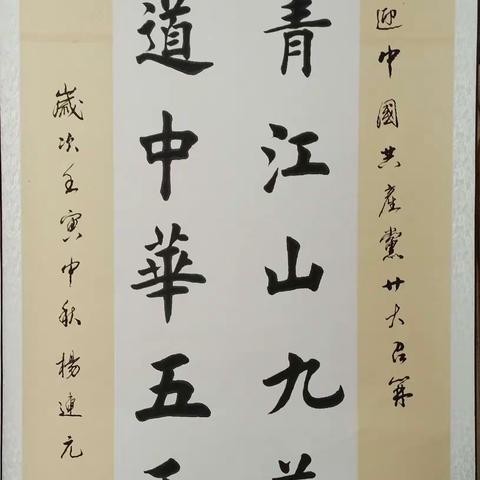 迎中國共產黨廿大召開
青江山九
道中華五
歲次壬寅中秋楊連元